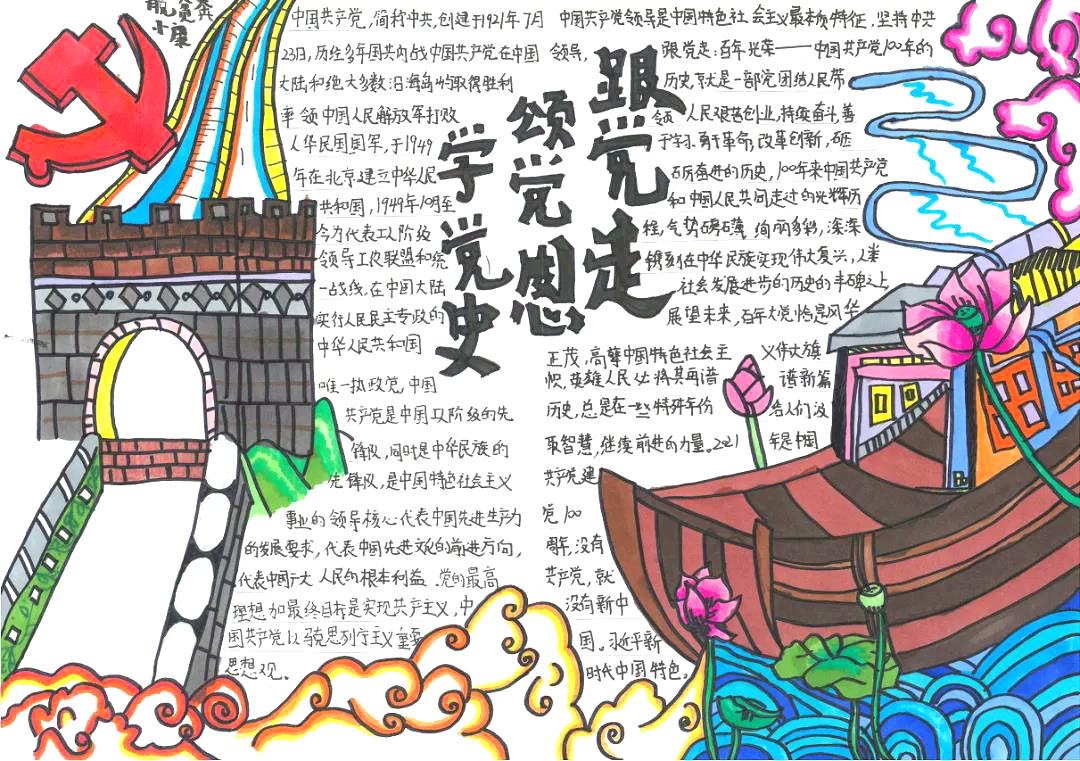 脱贫
小康
学党史
颂党恩
跟党走
中国共产党,简称中共,创建于1921年7月
23日,历经多年国共内战中国共产党在中国
大陆和绝大多数沿海岛屿取得胜利
率领中国人民解放军打败
人华民国国军,于1949
年在北京建立中华人民
共和国,1949年10月至
今为代表工人阶级
领导工农联盟和统
一战线,在中国大陆
实行人民民主专政的
中华人民共和国
唯一执政党,中国
共产党是中国工人阶级的先
锋队,同时是中华民族的
先锋队,是中国特色社会主义
事业的领导核心代表中国先进生产力
的发展要求,代表中国先进文化的前进方向,
代表中国广大人民的根本利益.党的最高
理想和最终目标是实现共产主义,中
国共产党以
思想观。
中国共产党领导是中国特色社会主义最本质特征,坚持中共
领导,跟党走:百年光荣——中国共产党100年的
历史,就是一部党团结人民带
领人民艰苦创业,持续奋斗,善
于学习.勇于革命,改革创新,砥
砺奋进的历史,100年来中国共产党
和中国人民共同走过的光辉历
程,气势磅礴,绚丽多彩,深深
镌刻在中华民族实现伟大复兴,人类
社会发展进步的历史的丰碑之上
展望未来,百年大党恰是风华
正茂,高擎中国特色社会主义伟大旗
帜,英雄人民必将共再谱谱新篇
历史,总是在一些特殊年份给人们汲
取智慧,继续前进的力量。2021年是中国
共产党建
党100
周年,没有
共产党,就
没有新中
国。习近平新
时代中国特色。